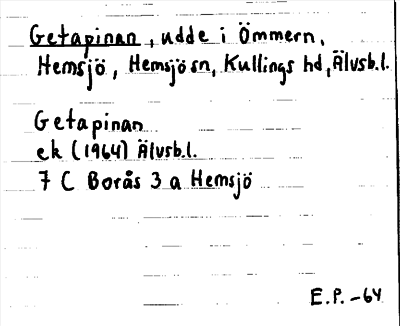 Getapinan, udde i Ömmern,
Hemsjö, Hemsjö sn, Kullings hd, Älvsb.l.
Getapinan
ek (1964) Älvsb.l.
7 C Borås 3 a Hemsjö
E.P.-64